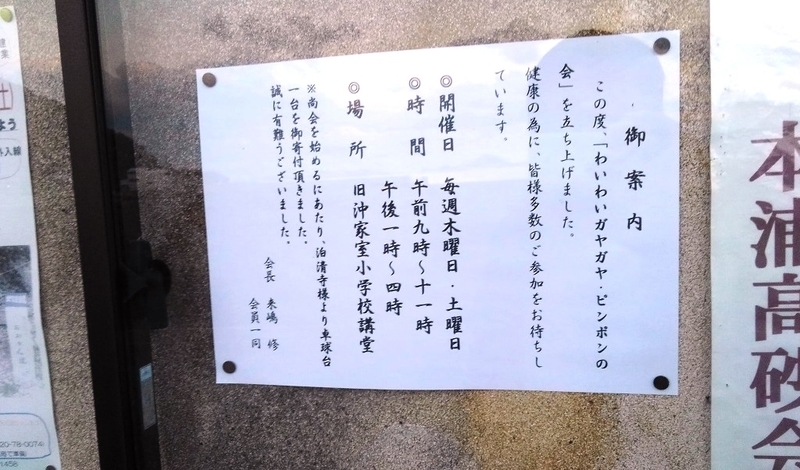 御案内
この度、「わいわいガヤガヤ・ピンポンの
会」を立ち上げました。
健康の為に、皆様多数のご参加をお待ちし
ています。
◎開催日 毎週木曜日・土曜日
◎時間 午前九時～十一時
午後一時～四時
◎場所 旧沖家室小学校講堂
※尚会を始めるにあたり、泊清寺様より卓球台
一台を御寄付頂きました。
誠に有難うございました。
会長 来嶋 修
会員一同
本浦高砂会
20-78-0074
1458